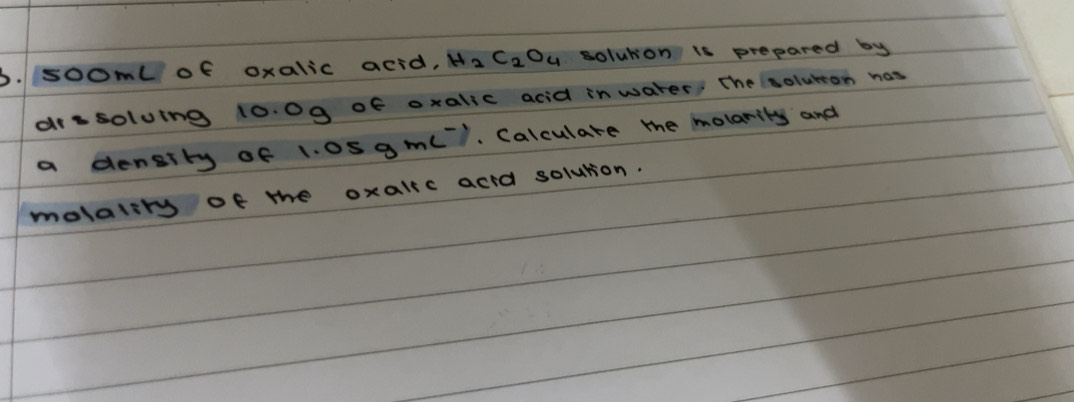 3. 500mL of oxalic acid, H₂C₂O₄ solution is prepared by
dissolving 10.0g of oxalic acid in water. The solution has
a density of 1.05 g mL⁻¹. Calculate the molarity and
molality of the oxalic acid solution.